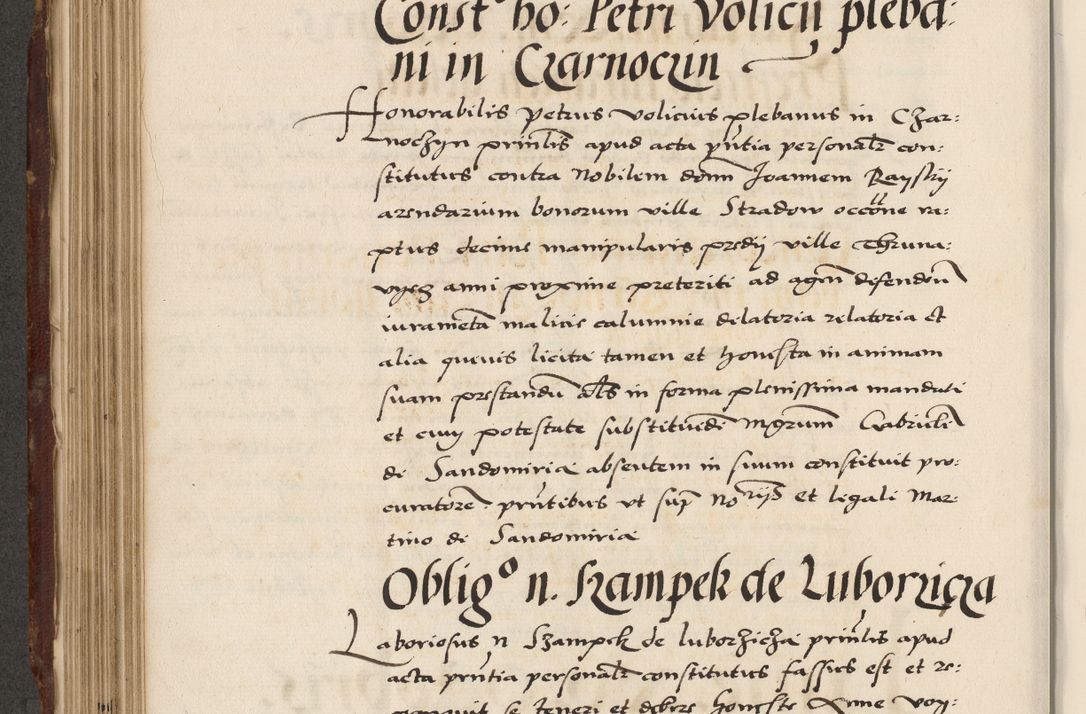 Constº ho: Petri Volicij pleba:
ni in Czarnoczin
Honorabilis petrus volicius plebanus in Czar:
noczyn prinlis apud acta pntia personalr con:
stitutus contra Nobilem donn Joannem Rayskij
arendarium bonorum ville Stradow occone ra:
ptus decime manipularis predij ville Thruna:
vycz anni proxime preteriti ad agen defenden
iurameta malicie calumnie delatoria relatoria et
alia quevis licita tamen et honesta in animam
suam prestandu als in forma plenissima mandati
et cum potestate substituedi Mgrum Gabriele
de Sandomiria absentem in suum constituit pro:
curatore prntibus ut supr Norijs et legali Mar
tino de Sandomiria
Obligº n. Szampek de Luborzicza
Laboriosus n Szampek de luborzicza prinlis apud
acta prntia personalr constitutus fassus est et re:
se teneri et debere honeste Anne